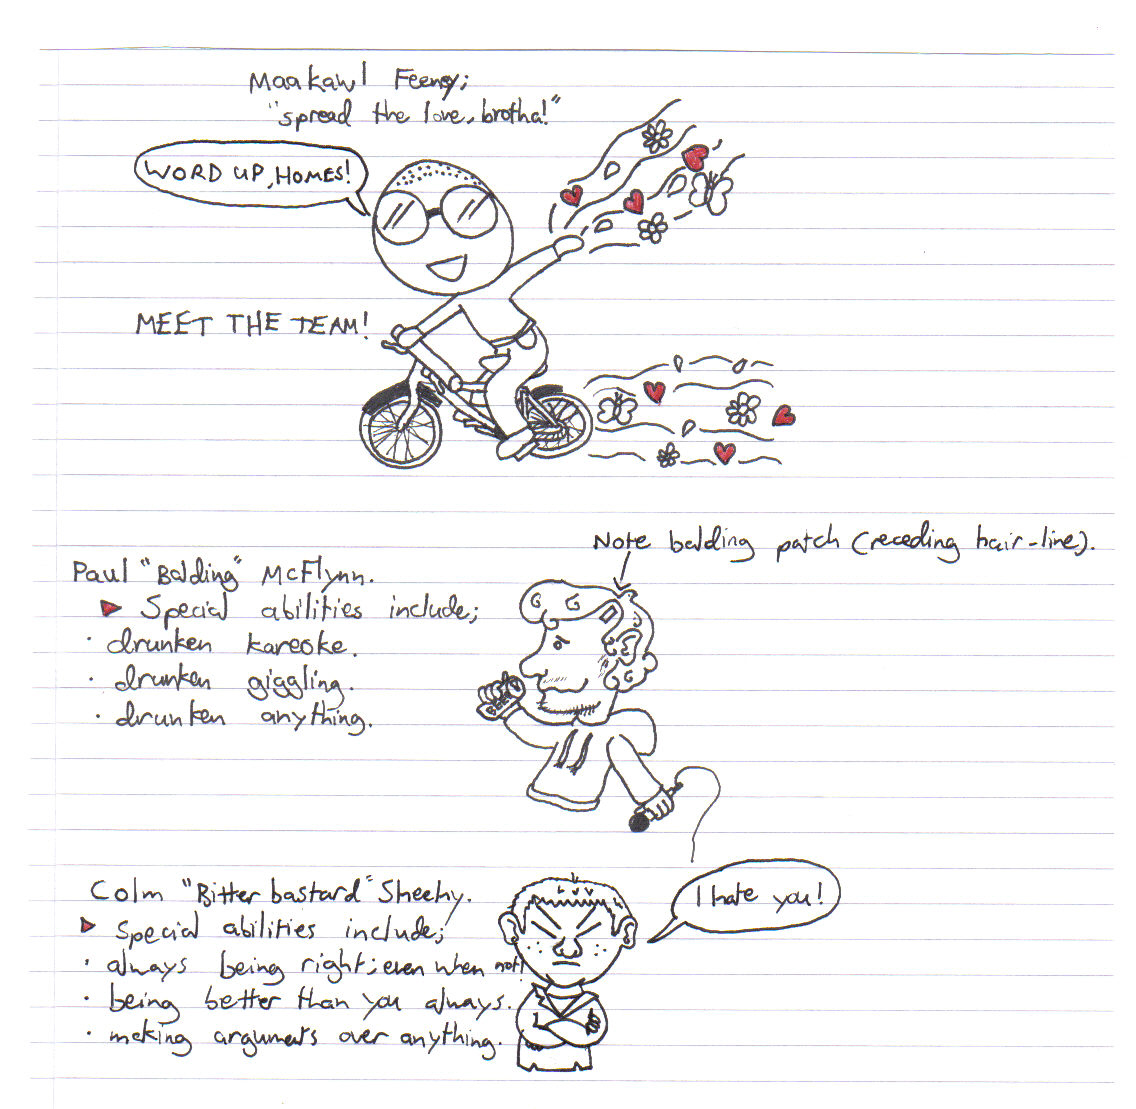 Maakawl Feeney;
"spread the love, brotha!"
WORD UP, HOMES!
MEET THE TEAM!
Note balding patch (receding hair-line).
Paul "Balding" McFlynn.
Special abilities include;
· drunken kareoke.
· drunken giggling.
· drunken anything.
BEER
Colm "Bitter bastard" Sheehy.
Special abilities include;
· always being right; even when not!
· being better than you always.
· making arguments over anything.
I hate you!